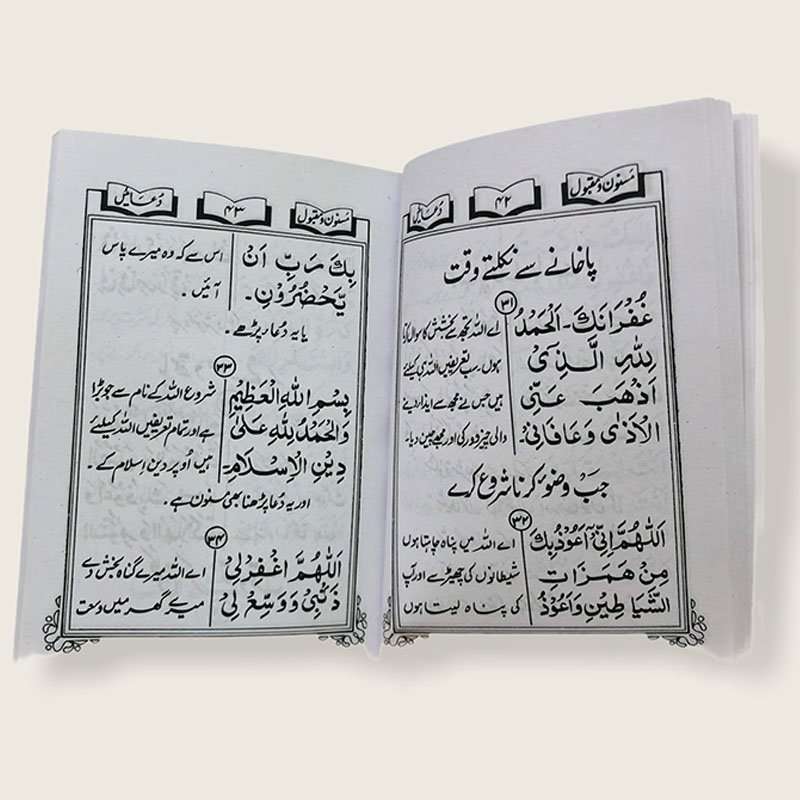 مسنون و مقبول ۴۲ دُعائیں
پاخانے سے نکلتے وقت
۳۱
غُفْرَانَكَ۔ اَلْحَمْدُ
لِلّٰهِ الَّذِیْ
اَذْهَبَ عَنِّی
الْاَذٰی وَعَافَانِیْ۔
اے اللہ تجھ سے بخشش کا سوال کرتا
ہوں۔ سب تعریفیں اللہ ہی کیلئے
ہیں جس نے مجھ سے ایذا دینے
والی چیز دُور کی اور مجھے چین دیا۔
جب وضو کرنا شروع کرے
۳۲
اَللّٰهُمَّ اِنِّیْ اَعُوْذُ بِكَ
مِنْ هَمَزَاتِ
الشَّیَاطِیْنِ وَاَعُوْذُ
اے اللہ میں پناہ چاہتا ہوں
شیطانوں کی چھیڑ سے اور آپ
کی پناہ لیتا ہوں
مسنون و مقبول ۴۳ دُعائیں
بِكَ رَبِّ اَنْ
یَّحْضُرُوْنِ۔
اس سے کہ وہ میرے پاس
آئیں۔
یا یہ دُعا پڑھے۔
۳۳
بِسْمِ اللهِ الْعَظِیْمِ
وَالْحَمْدُ لِلّٰهِ عَلٰی
دِیْنِ الْاِسْلَامِ۔
شروع اللہ کے نام سے جو بڑا
ہے اور تمام تعریفیں اللہ کیلئے
ہیں اُوپر دین اسلام کے۔
اور یہ دُعا پڑھنا بھی مسنون ہے۔
۳۴
اَللّٰهُمَّ اغْفِرْ لِیْ
ذَنْبِیْ وَوَسِّعْ لِیْ
اے اللہ میرے گناہ بخش دے
میرے گھر میں وسعت